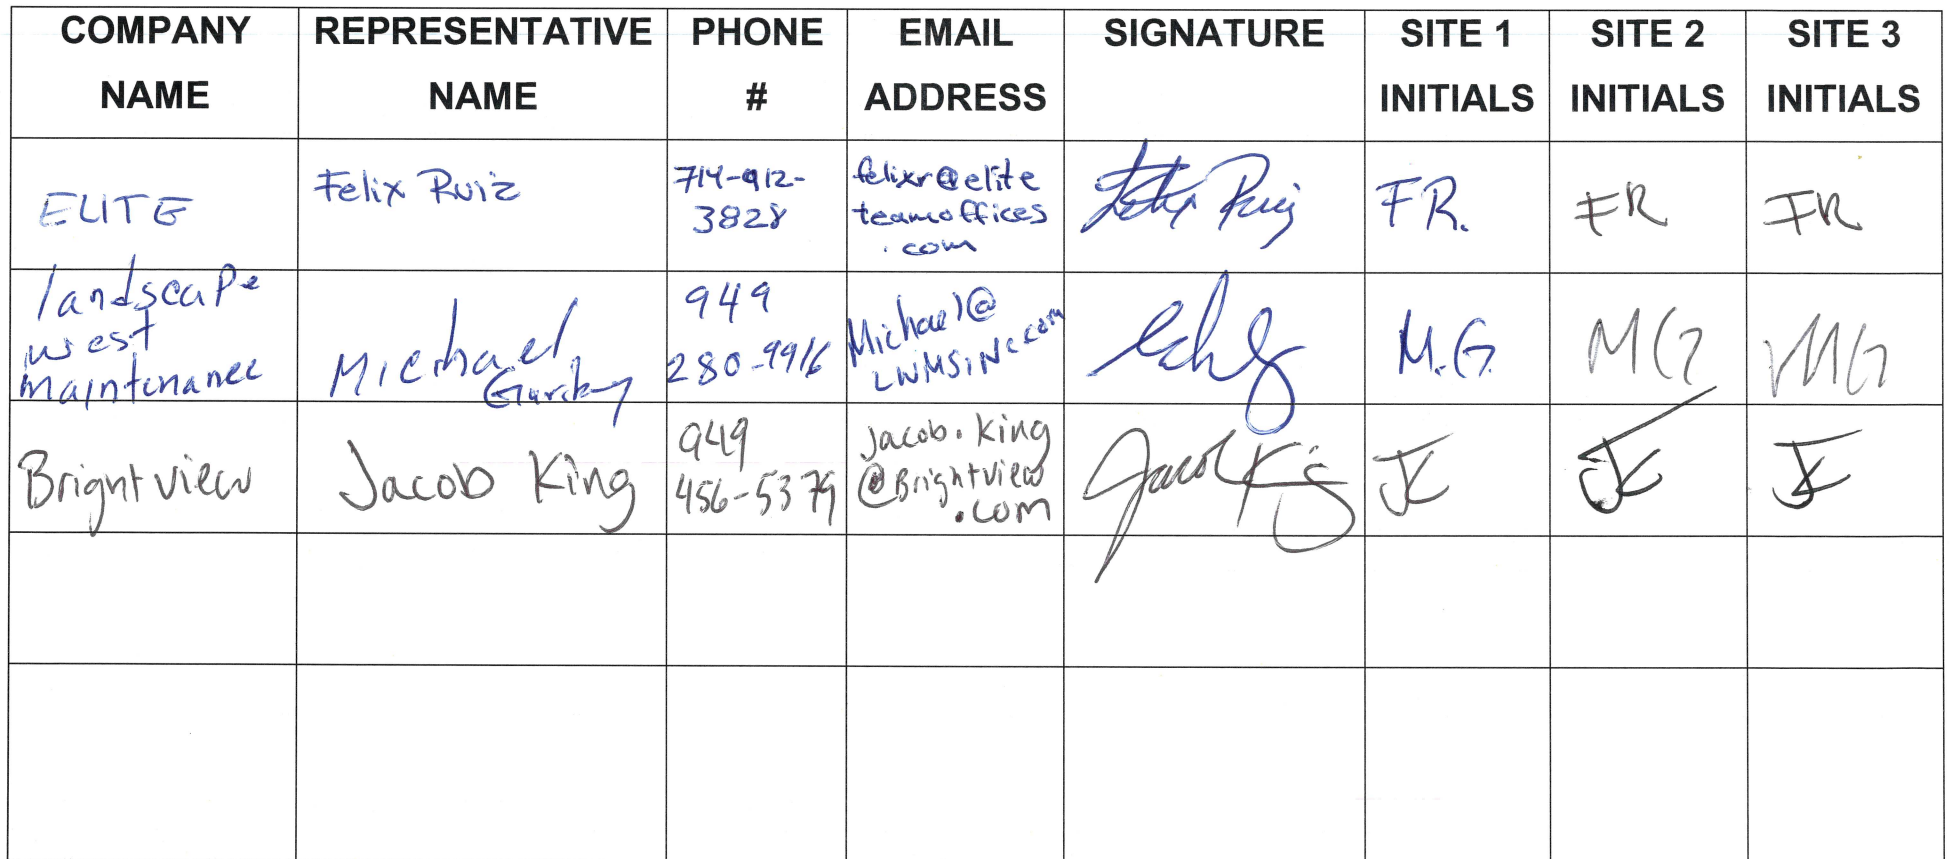 COMPANY NAME
REPRESENTATIVE NAME
PHONE #
EMAIL ADDRESS
SIGNATURE
SITE 1 INITIALS
SITE 2 INITIALS
SITE 3 INITIALS
ELITE
Felix Ruiz
714-912-
3828
felixr@elite
teamoffices
.com
Felix Ruiz
FR.
FR
FR
landscape
west
maintenance
Michael
949
280-9916
Michael@
LWMSiNc.com
M.G.
MG
MG
Brightview
Jacob King
949
456-5379
Jacob.King
@Brightview
.com
Jacob King
JK
JK
JK